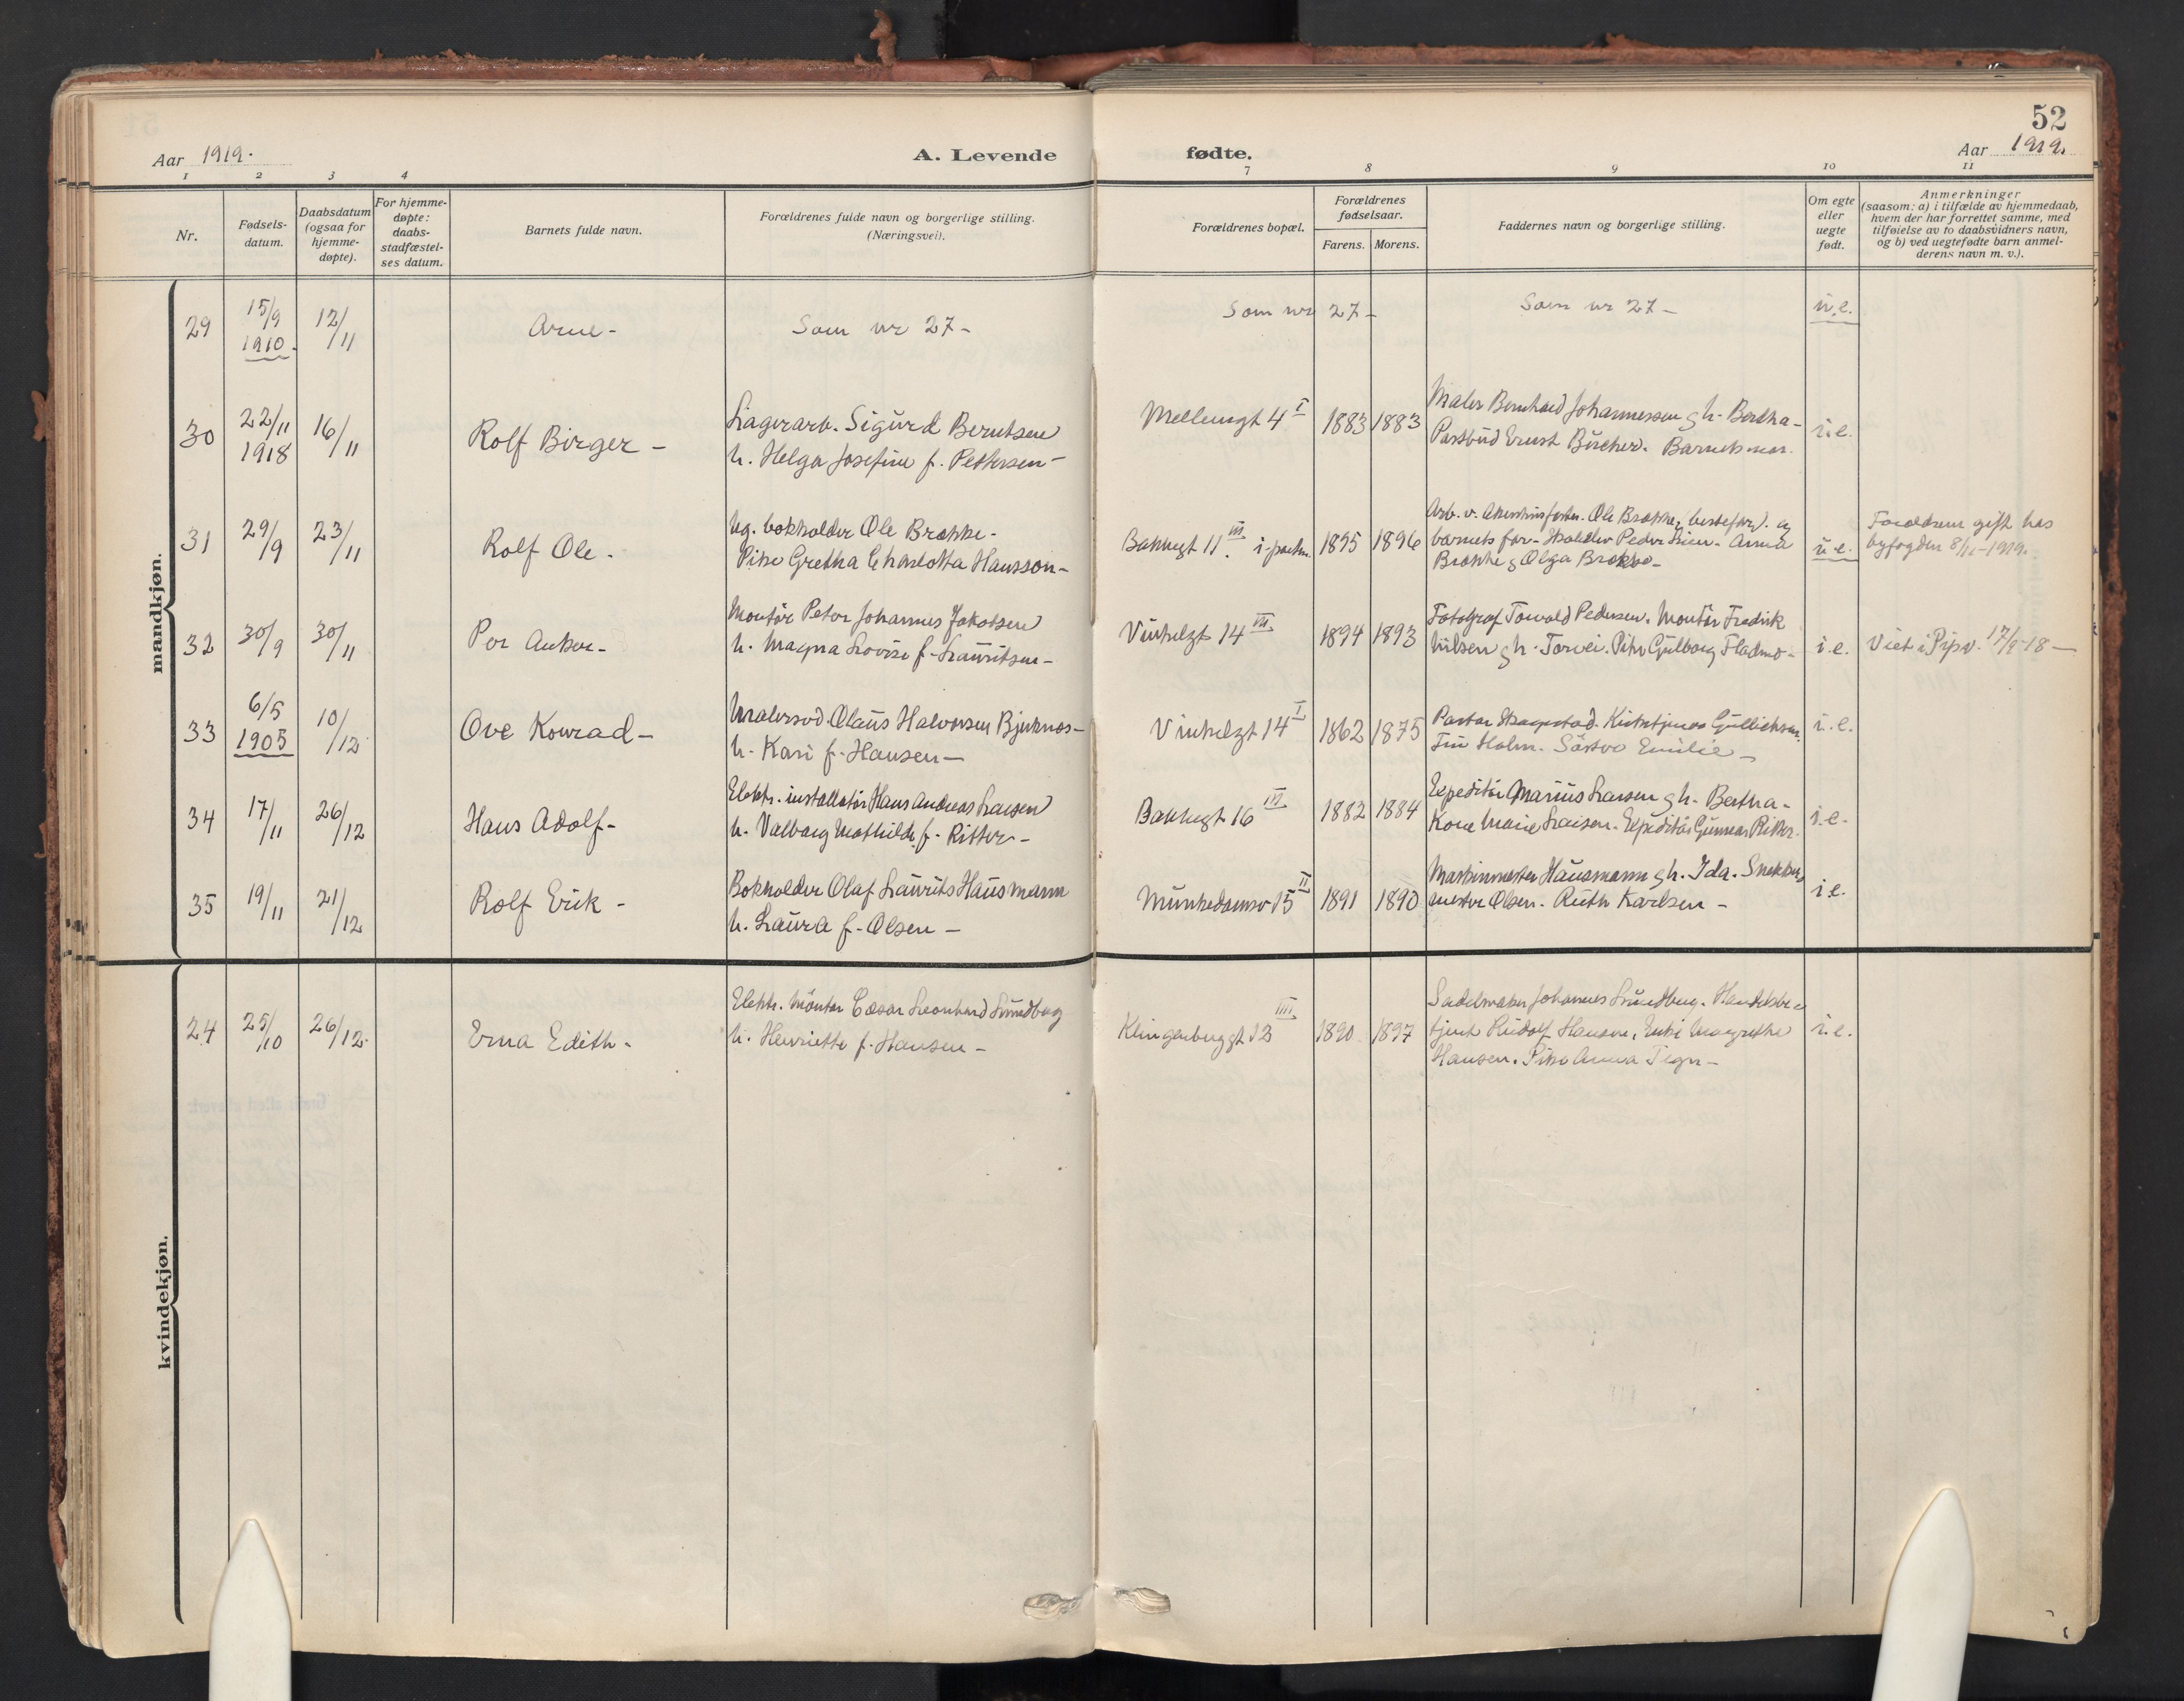 52
Aar 1919. A. Levende fødte. Aar 1919.
1 2 3 4 7 8 9 10 11
Nr.
Fødsels-
datum.
Daabsdatum
(ogsaa for
hjemme-
døpte).
For hjemme-
døpte:
daabs-
stadfæstel-
ses datum.
Barnets fulde navn.
Forældrenes fulde navn og borgerlige stilling.
(Næringsvei).
Forældrenes bopæl.
Forældrenes
fødselsaar.
Farens. Morens.
Faddernes navn og borgerlige stilling.
Om egte
eller
uegte
født.
Anmerkninger
(saasom: a) i tilfælde av hjemmedaab,
hvem der har forrettet samme, med
tilføielse av to daabsvidners navn,
og b) ved uegtefødte barn anmel-
derens navn m. v.).
mandkjøn.
29 15/9 1910. 12/11 Arne - Som nr 27 - Som nr 27 - Som nr 27 - u.e.
30 22/11 1918 16/11 Rolf Birger -
Lagerarb. Sigurd Berntsen
h. Helga Josefine f. Pettersen -
Mellemgt 4 I 1883 1883
Maler Bernhard Johannessen g h. Bertha -
Postbud Ernst Bücher. Barnets mor.
i.e.
31 29/9 23/11 Rolf Ole -
Ug. bokholder Ole Brokke -
Pike Gretha Charlotta Hansson -
Bakkegt 11 III 1895 1896
Arb. v. Ole Brokke, bestefar). og
barnets far - Peder Lien - Anna
Brokke g Olga Brokke -
u.e.
Forældrene gift hos
byfogden 8/11 - 1919.
32 30/9 30/11 Per Anker -
Montør Peter Johannes Jakobsen
h. Magna Lovise f. Lauritsen -
Vinkelgt 14 III 1894 1893
Fotograf Torvald Pedersen. Montør Fredrik
Nilsen g h. Torvei. Pike Gulborg Fladmo -
i.e.
Viet i Pipv. 17/9-18 -
33 6/5 1905 10/12 Ove Konrad -
Malersvd. Olaus Halvorsen Bjerknes -
h. Kari f. Hansen -
Vinkelgt 14 I 1862 1875
Pastor Skagestad. Kirketjener Gullichsen.
Holm. Søster Emilie -
i.e.
34 17/11 26/12 Hans Adolf -
Elektr. installatør Hans Andreas Larsen
h. Valborg Mathilde f. Ritter -
Bakkegt 16 III 1882 1884
Expeditør Marius Larsen g h. Bertha -
Kone Marie Larsen. Expeditør Gunnar Ritter.
i.e.
35 19/11 21/12 Rolf Erik -
Bokholder Olaf Laurits Hausmann
h. Laura f. Olsen -
Munkedamsv 15 II 1891 1890
Maskinmester Hausmann g h. Ida. Snekker
mester Olsen. Ruth Karlsen -
i.e.
kvindekjøn.
24 25/10 26/12. Erna Edith -
Elektr. Montør Cæsar Leonhard Lundberg
h. Henriette f. Hansen -
Klingenberggt 13 IIII 1890. 1897
Sadelmaker Johannes Lundberg. Handelsbe-
tjent Rudolf Hansen, Enke Margrethe
Hansen. Pike Anna Tegn -
i.e.